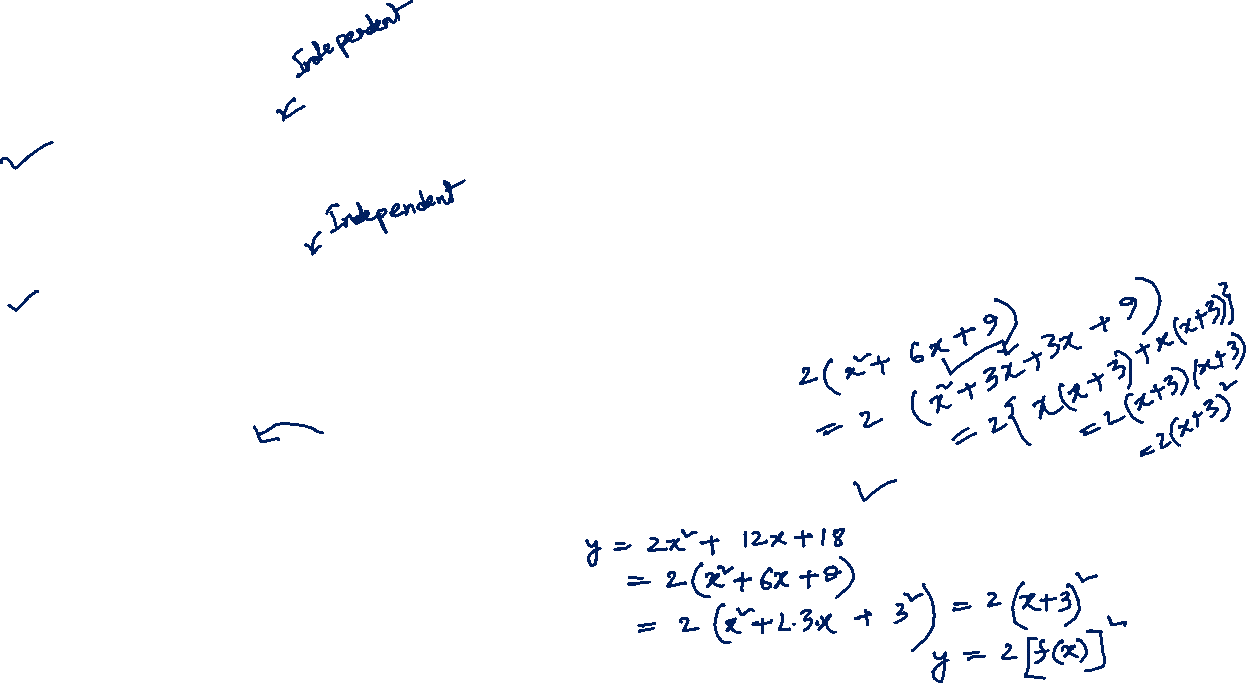 Independent
Independent
2(x²+ 6x+9)
= 2 (x²+3x+3x+9)
= 2{x(x+3)+x(x+3)}
= 2(x+3)(x+3)
= 2(x+3)²
y = 2x²+ 12x+18
= 2(x²+6x+9)
= 2(x²+2.3.x + 3²) = 2(x+3)²
y = 2[f(x)]²